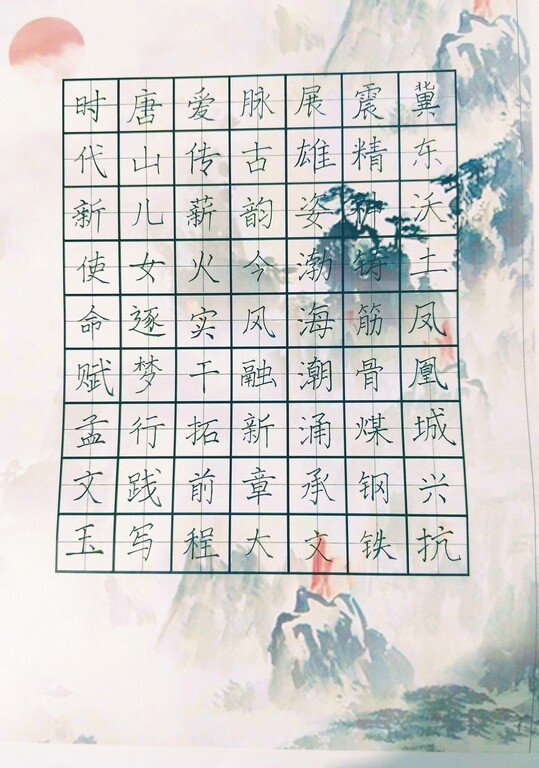 冀东沃土凤凰城兴抗
震精神铸筋骨煤钢铁
展雄姿渤海潮涌承文
脉古韵今风融新章大
爱传薪火实干拓前程
唐山儿女逐梦行践写
时代新使命赋孟文玉